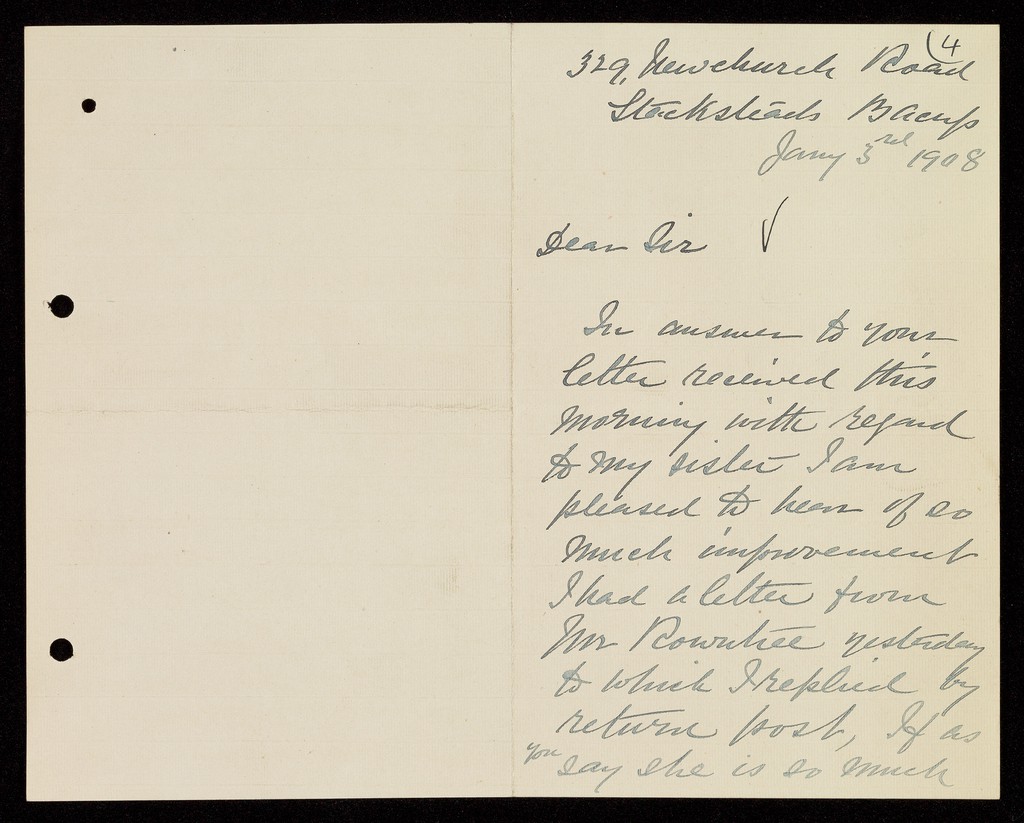 (4
329, Newchurch Road
Stacksteads Bacup
Jany 3rd 1908
Dear Sir
In answer to your
letter received this
morning with regard
to my sister I am
pleased to hear of so
much improvement
I had a letter from
Mr Rowntree yesterday
to which I replied by
return post, If as
you say she is so much